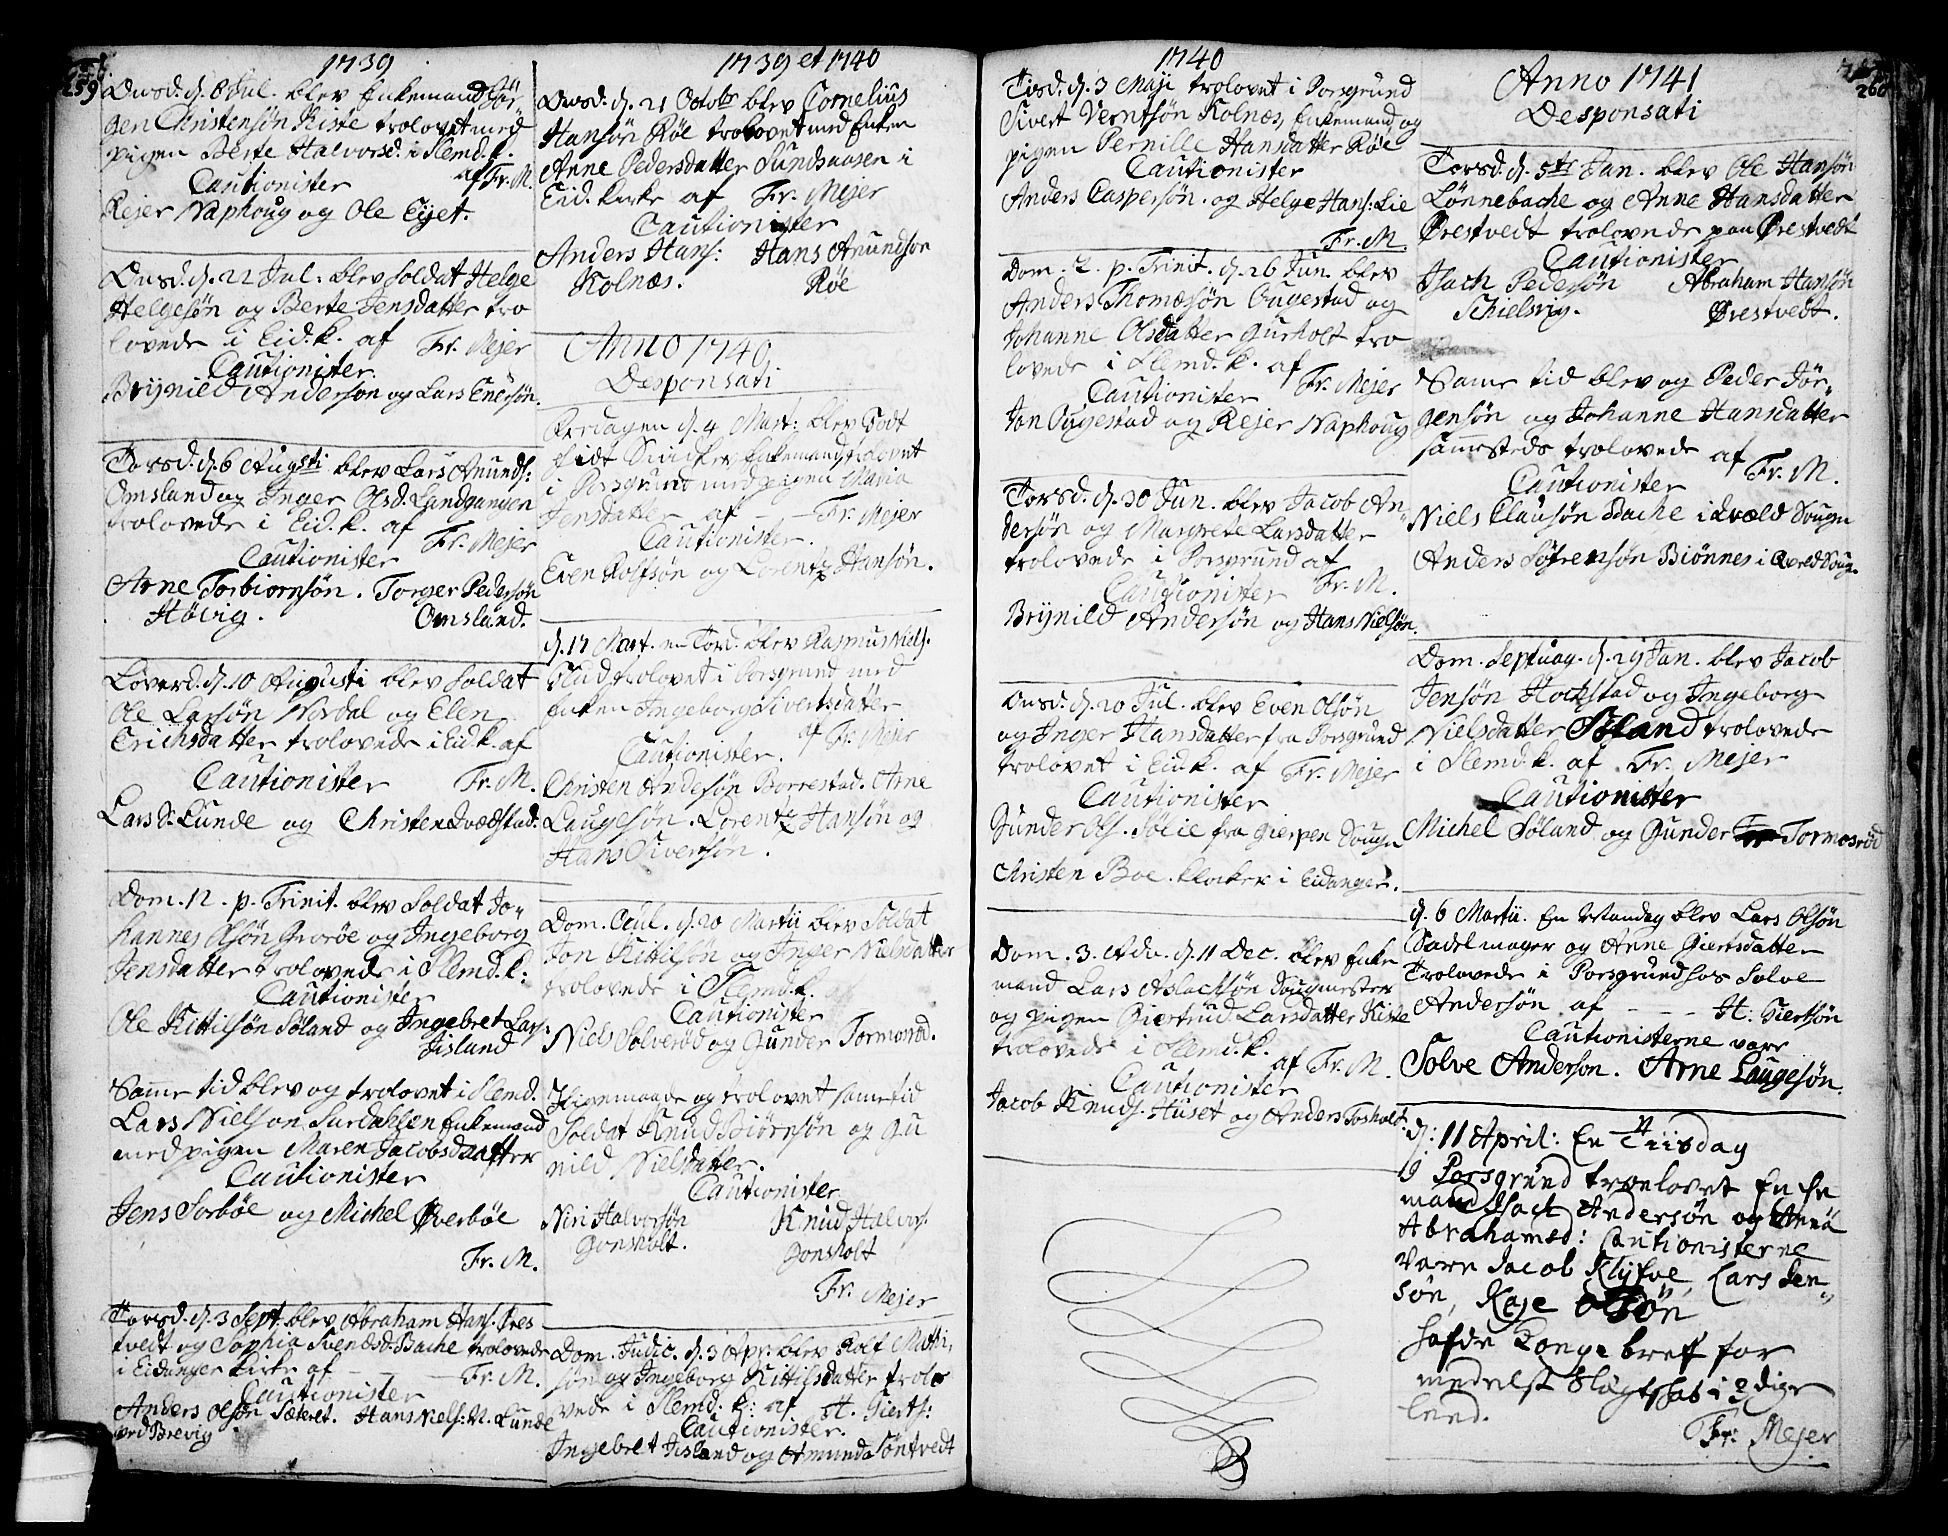 259
1739
Onsd. d. 8 Jul. blev Enkemand Jör-
gen Christensön Kiste trolovet med
pigen Berte Halvorsd. i Slemd. k.
Cautionister af Fr. M.
Rejer Naphoug og Ole Eijet.
Onsd. d. 22 Jul: blev soldat Helge
Helgesön og Berte Jensdatter tro
lovede i Eid. k. af Fr. Mejer
Cautionister.
Brijnild Anderson og Lars Enersön.
Torsd. d. 6 Augsti blev Lars Anunds:
Omsland og Inger Olsd. Landgangen
trolovede i Eid. k. af Fr. Mejer
Cautionister
Arne Torbiornsön. Torger Pedersön
Høvig. Omsland.
Löverd. d. 10 Augusti blev soldat
Ole Larsön Nordal og Elen
Erichsdatter trolovede i Eid. k. af
Cautionister Fr. M.
Lars D: Lunde og Christen Qvædstad.
Dom. 12. p. Trinit. blev Soldat Jo-
hannes Olsön Grorøe og Ingeborg
Jensdatter trolovede i Slemd. k:
Cautionister
Ole Kittilsön Söland og Ingebret Lars:
Jisland
Samme tid blev og trolovet i Slemd.
Lars Nielson Surdahlen Enkemand
med pigen Maren Jacobsdatter
Cautionister
Jens Sorbøe og Michel Øverbøe
Fr. M.
Torsd. d. 3 Sept. blev Abraham Hans. Øres
tvedt og Sophia Svendsd. Bache trolovede
i Eidanger kirke af Fr. M.
Cautionister
Anders Olsön Sæteret. Hans Niels: N. Lunde
ved Brevig
1739 et 1740
Onsd. d. 21 Octobr blev Cornelius
Hansön Røe trolovet med Enken
Anne Pedersdatter Sundsaasen i
Eid. kirke af Fr. Mejer
Cautionister
Anders Hans: Hans Anundson
Kolnæs. Røe
Anno 1740
Desponsati
Fredagen d. 4 Mart: blev Todt
Enkemand trolovet
i Porsgrund med pigen Maria
Jensdatter af - - Fr. Mejer
Cautionister.
Even Rolfsön og Lorentz Hansön.
d. 17 Mart. en Torsd. blev Rasmus Niels.
trolovet i Porsgrund med
Enken Ingeborg Sivertsdatter
af Fr. Mejer
Cautionister.
Christen Andersön Borrestad. Arne
Laugesön. Lorentz Hansön og
Hans Siversön.
Dom. Ocul. d. 20 Martii blev Soldat
Jon Kittilsön og Inger Nielsdatter
trolovede i Slemd. k. af
Cautionister
Niels Solverød og Gunder Tormorød.
Ligemaade og trolovet same tid
Soldat Knud Biörnsön og Gu
nild Nielsdatter.
Cautionister
Niri Halvorsön Knud Halvors.
Gonsholt. Gonsholt
Fr. Mejer
Dom. Judic. d. 3 Apr. blev Rolf Matti,
sön og Ingeborg Kittilsdatter trolo
vede i Slemd. k: af H. Gierts:
Cautionister.
Ingebret Jisland og Amund Søntvedt
1740
Tisd. d. 3 Maji trolovet i Porsgrund
Sivert Verntsön Kolnæs, Enkemand og
pigen Pernille Hansdatter Røe
Cautionister
Anders Caspersön og Helge Hans: Lie
Fr. M.
Dom. 2. p. Trinit. d. 26 Jun. blev
Anders Thomæsön Ougestad og
Johanne Olsdatter Gurholt tro
lovede i Slemd. k. af
Cautionister Fr. Mejer
Jon Ougestad og Rejer Naphoug
Torsd. d. 30 Jun. blev Jacob An
dersön og Margrete Larsdatter
trolovede i Porsgrund af
Cautionister Fr. M.
Brijnild Andersön og Hans Nielsön.
Onsd. d. 20 Jul. blev Even Olsön
og Inger Hansdatter fra Porsgrund
trolovet i Eid. k. af Fr. Mejer
Cautionister
Gunder Ols. Sølie fra Gierpen Sougn
Christen Boe klocker i Eidanger.
Dom. 3. Adv. d. 11 Dec. blev Enke
mand Lars Aslachsön Sougmester
og pigen Giertrud Larsdatter Kiste
trolovede i Slemd. k.
af Fr. M.
Cautionister
Jacob Knuds. Huset og Anders Tosholt.
260
Anno 1741
Desponsati
Torsd. d. 5te Jan. blev Ole Hansön
Lönnebache og Anne Hansdatter
Ørestvedt trolovede paa Ørestvedt
Cautionister
Isach Pedersön Abraham Hansön
Schielsvig. Ørestvedt.
Same tid blev og Peder Jör-
gensön og Johanne Hansdatter
sammesteds trolovede af
Cautionister Fr. M.
Niels Clausön Bache i Qvæld Sougn
Anders Söfrensön Biönnes i Sougn.
Dom. Septuag. d. 29 Jan. blev Jacob
Jensön Hochstad og Ingeborg
Nielsdatter trolovede
i Slemd. k. af Fr. Mejer
Cautionister
Michel Söland og Gunder Tormosrød
d. 6 Martii. En Mandag blev Lars Olsön
Sadelmager og Anne Giertsdatter
Trolovede i Porsgrund hos Solve
Andersön af - - - H: Giertsön
Cautionisterne vare
Solve Anderson. Arne Laugesön.
d: 11 April: En Tiisdag
i Porsgrund troelovet Encke
mand Isach Andersön og Anna
Abrahamsd: Cautionisterne
vare Jacob Klijfve, Lars Jen-
sön, Roje Olsön
hafde Konge bref for
medelst Slægtskab i 3 dige
leed.
Fr: Mejer